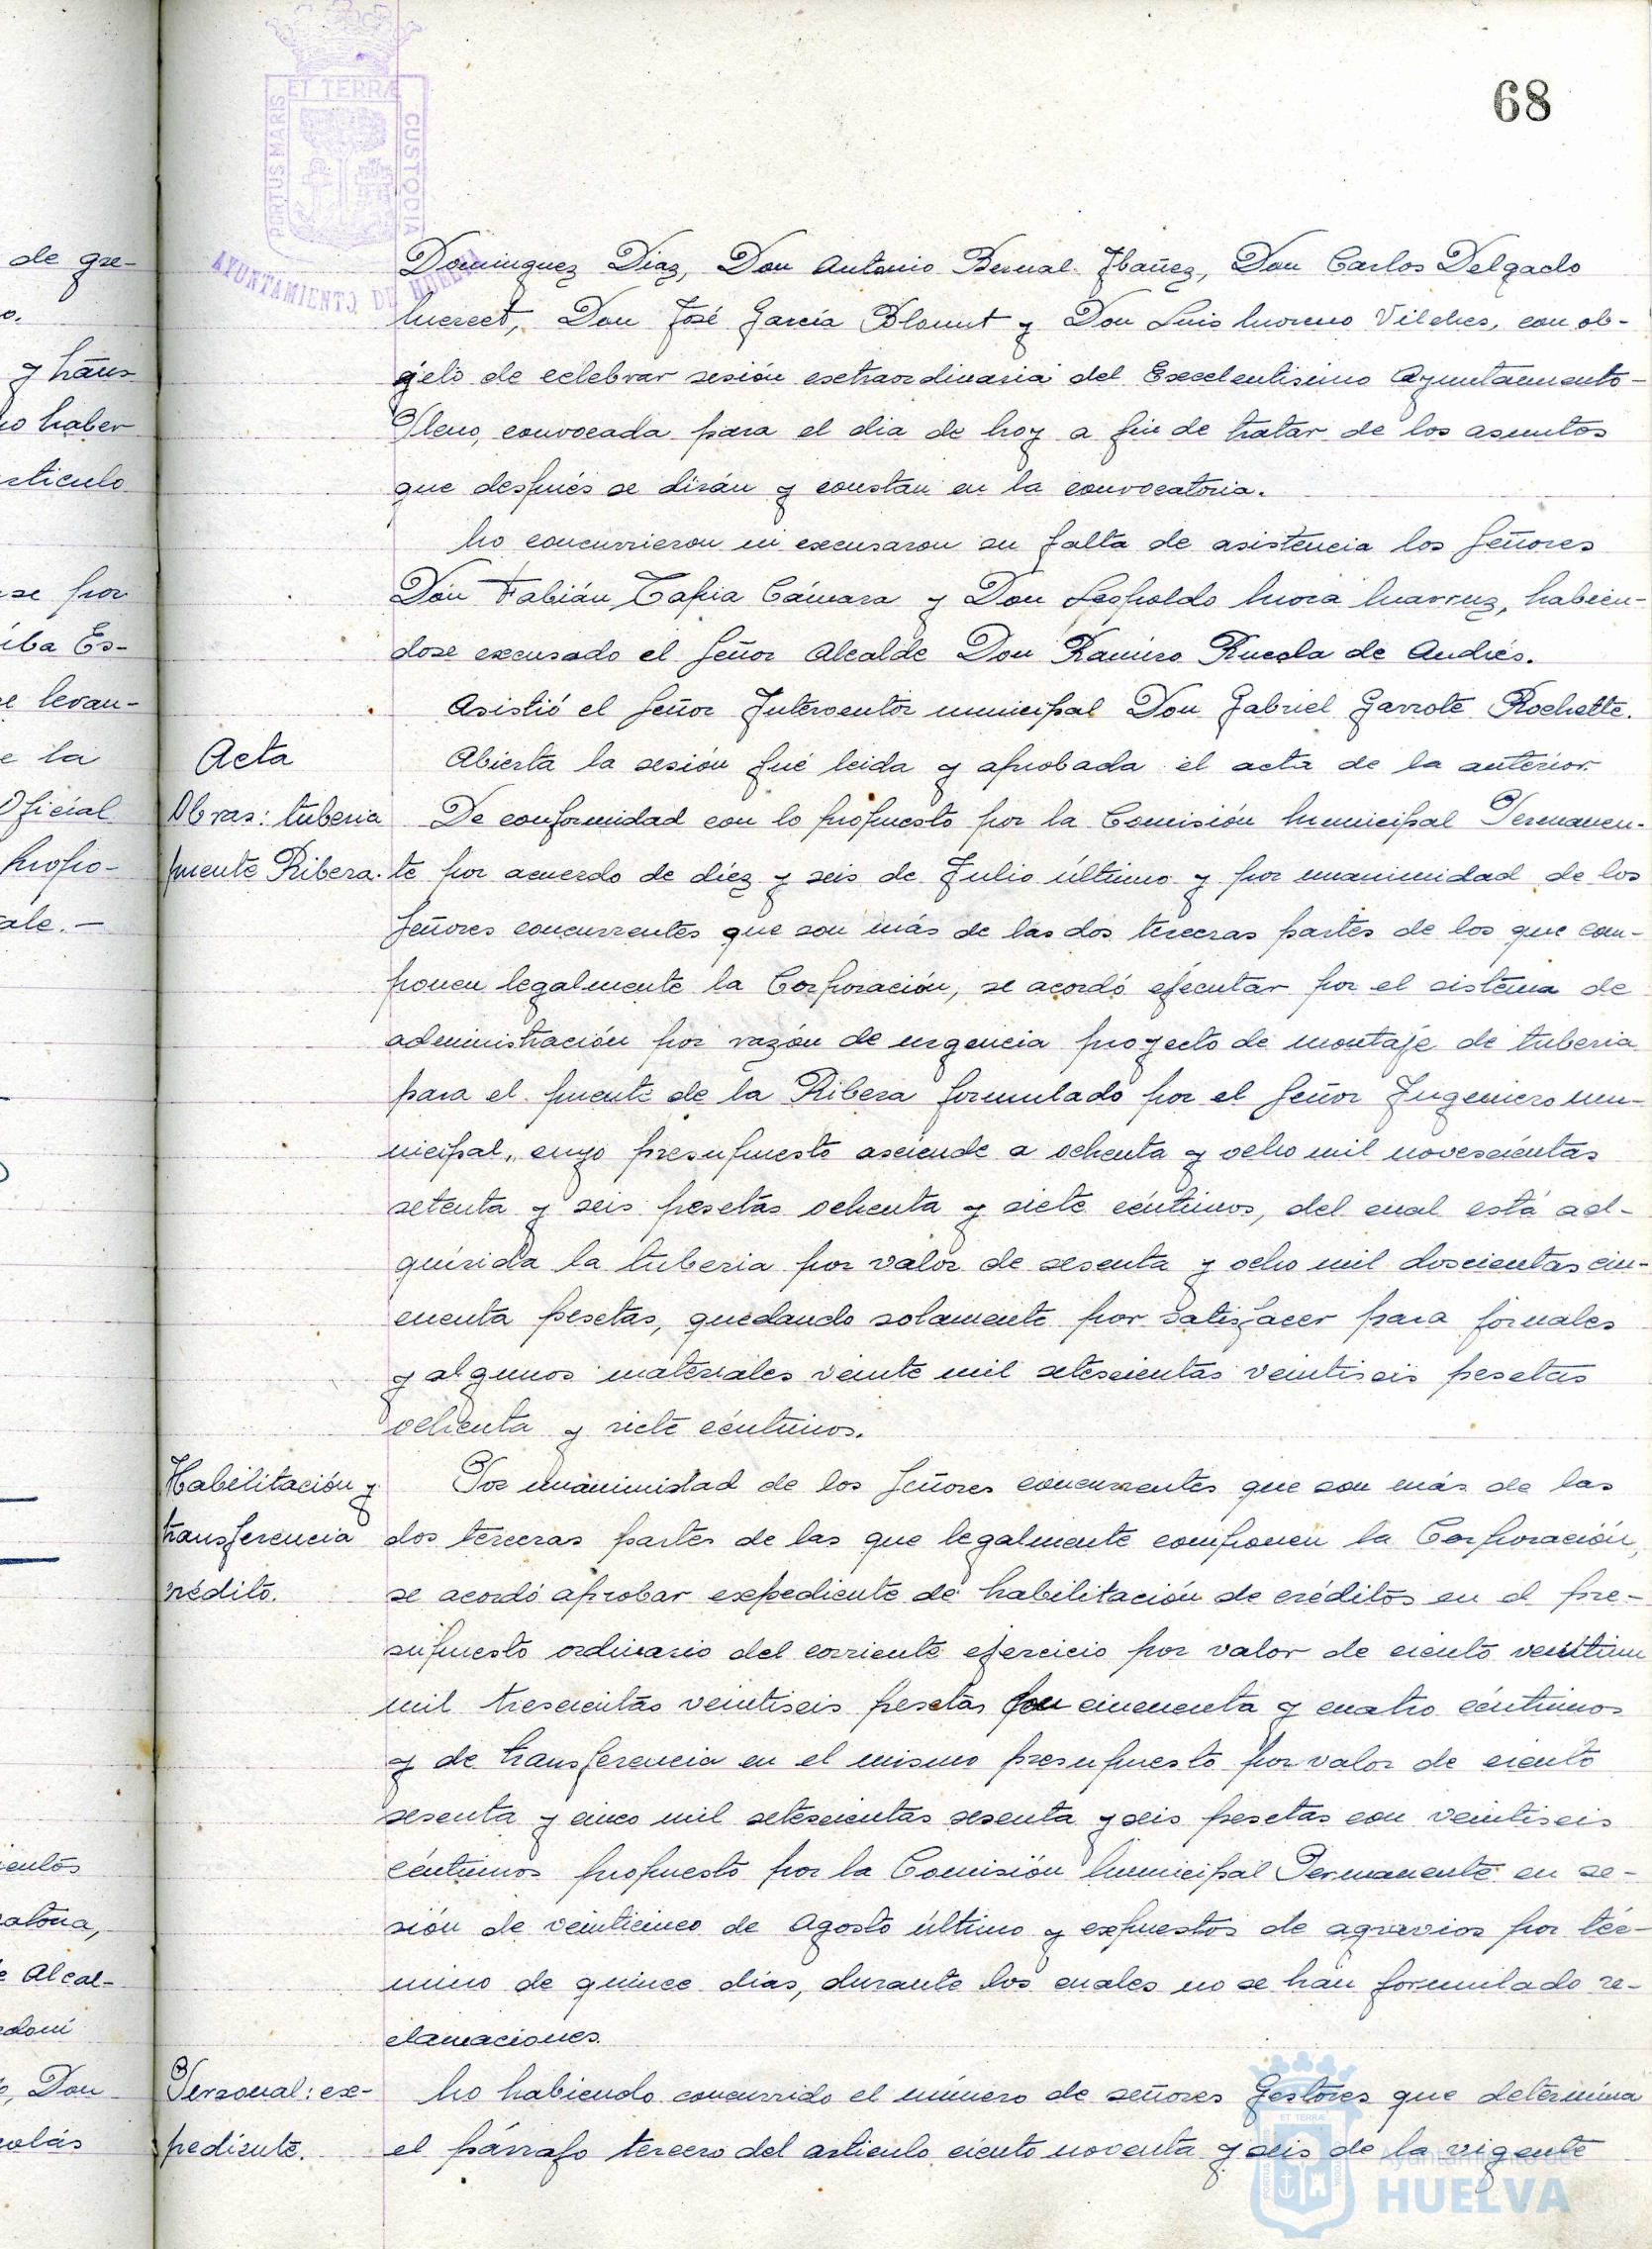 68
PORTUS MARIS ET TERRÆ CUSTODIA
AYUNTAMIENTO DE HUELVA
de gre-
o.
y trans
no haber
rticulo
se por
iba Es-
se levan-
e la
Oficial
propo-
ale.—
ientos
catoria,
e Alcal-
Don
olás
Dominguez Diaz, Don Antonio Bernal Ibañez, Don Carlos Delgado
Don José García Blount y Don Luis Moreno Vilches, con ob-
jeto de celebrar sesión extraordinaria del Excelentisimo Ayuntamiento-
Pleno, convocada para el dia de hoy a fin de tratar de los asuntos
que después se dirán y constan en la convocatoria.
No concurrieron ni excusaron su falta de asistencia los Señores
Don Fabián Tapia Cámara y Don Leopoldo Mora habien-
dose excusado el Señor Alcalde Don Ramiro Rueda de Andrés.
Asistió el Señor Interventor municipal Don Gabriel Garrote Rochette.
Acta
Abierta la sesión fué leida y aprobada el acta de la anterior.
Obras: tuberia
puente Ribera.
De conformidad con lo propuesto por la Comisión Municipal Permanen-
te por acuerdo de diez y seis de Julio último y por unanimidad de los
Señores concurrentes que son más de las dos terceras partes de los que com-
ponen legalmente la Corporación, se acordó ejecutar por el sistema de
administración por razón de urgencia proyecto de montaje de tuberia
para el puente de la Ribera formulado por el Señor Ingeniero mu-
nicipal, cuyo presupuesto asciende a ochenta y ocho mil novescientas
setenta y seis pesetas ochenta y siete céntimos, del cual está ad-
quirida la tuberia por valor de sesenta y ocho mil doscientas cin-
cuenta pesetas, quedando solamente por satisfacer para jornales
y algunos materiales veinte mil setescientas veintiseis pesetas
ochenta y siete céntimos.
Habilitación y
transferencia
crédito.
Por unanimidad de los Señores concurrentes que son más de las
dos terceras partes de las que legalmente componen la Corporación,
se acordó aprobar expediente de habilitación de créditos en el pre-
supuesto ordinario del corriente ejercicio por valor de ciento veintiun
mil trescientas veintiseis pesetas con cincuenta y cuatro céntimos
y de transferencia en el mismo presupuesto por valor de ciento
sesenta y cinco mil setescientas sesenta y seis pesetas con veintiseis
céntimos propuesto por la Comisión Municipal Permanente en se-
sión de veinticinco de Agosto último y expuestos de agravios por tér-
mino de quince dias, durante los cuales no se han formulado re-
clamaciones.
Personal: ex-
pediente.
No habiendo concurrido el número de señores Gestores que determina
el párrafo tercero del articulo ciento noventa y seis de la vigente
Ayuntamiento de
HUELVA